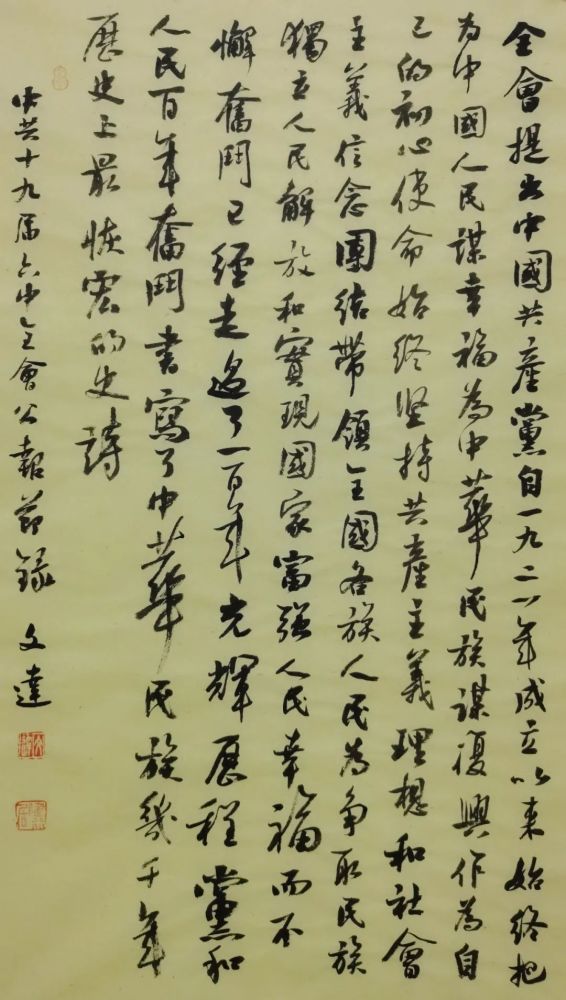 全會提出中國共產黨自一九二一年成立以来始終把
为中國人民謀幸福為中華民族謀復興作為自
己的初心使命始終坚持共產主義理想和社會
主義信念團結帶領全國各族人民為争取民族
獨立人民解放和實現國家富强人民幸福而不
懈奮鬥已經走過了一百年光輝歷程黨和
人民百年奮鬥書寫了中華民族幾千年
歷史上最恢宏的史詩
中共十九届六中全會公報節録 文達